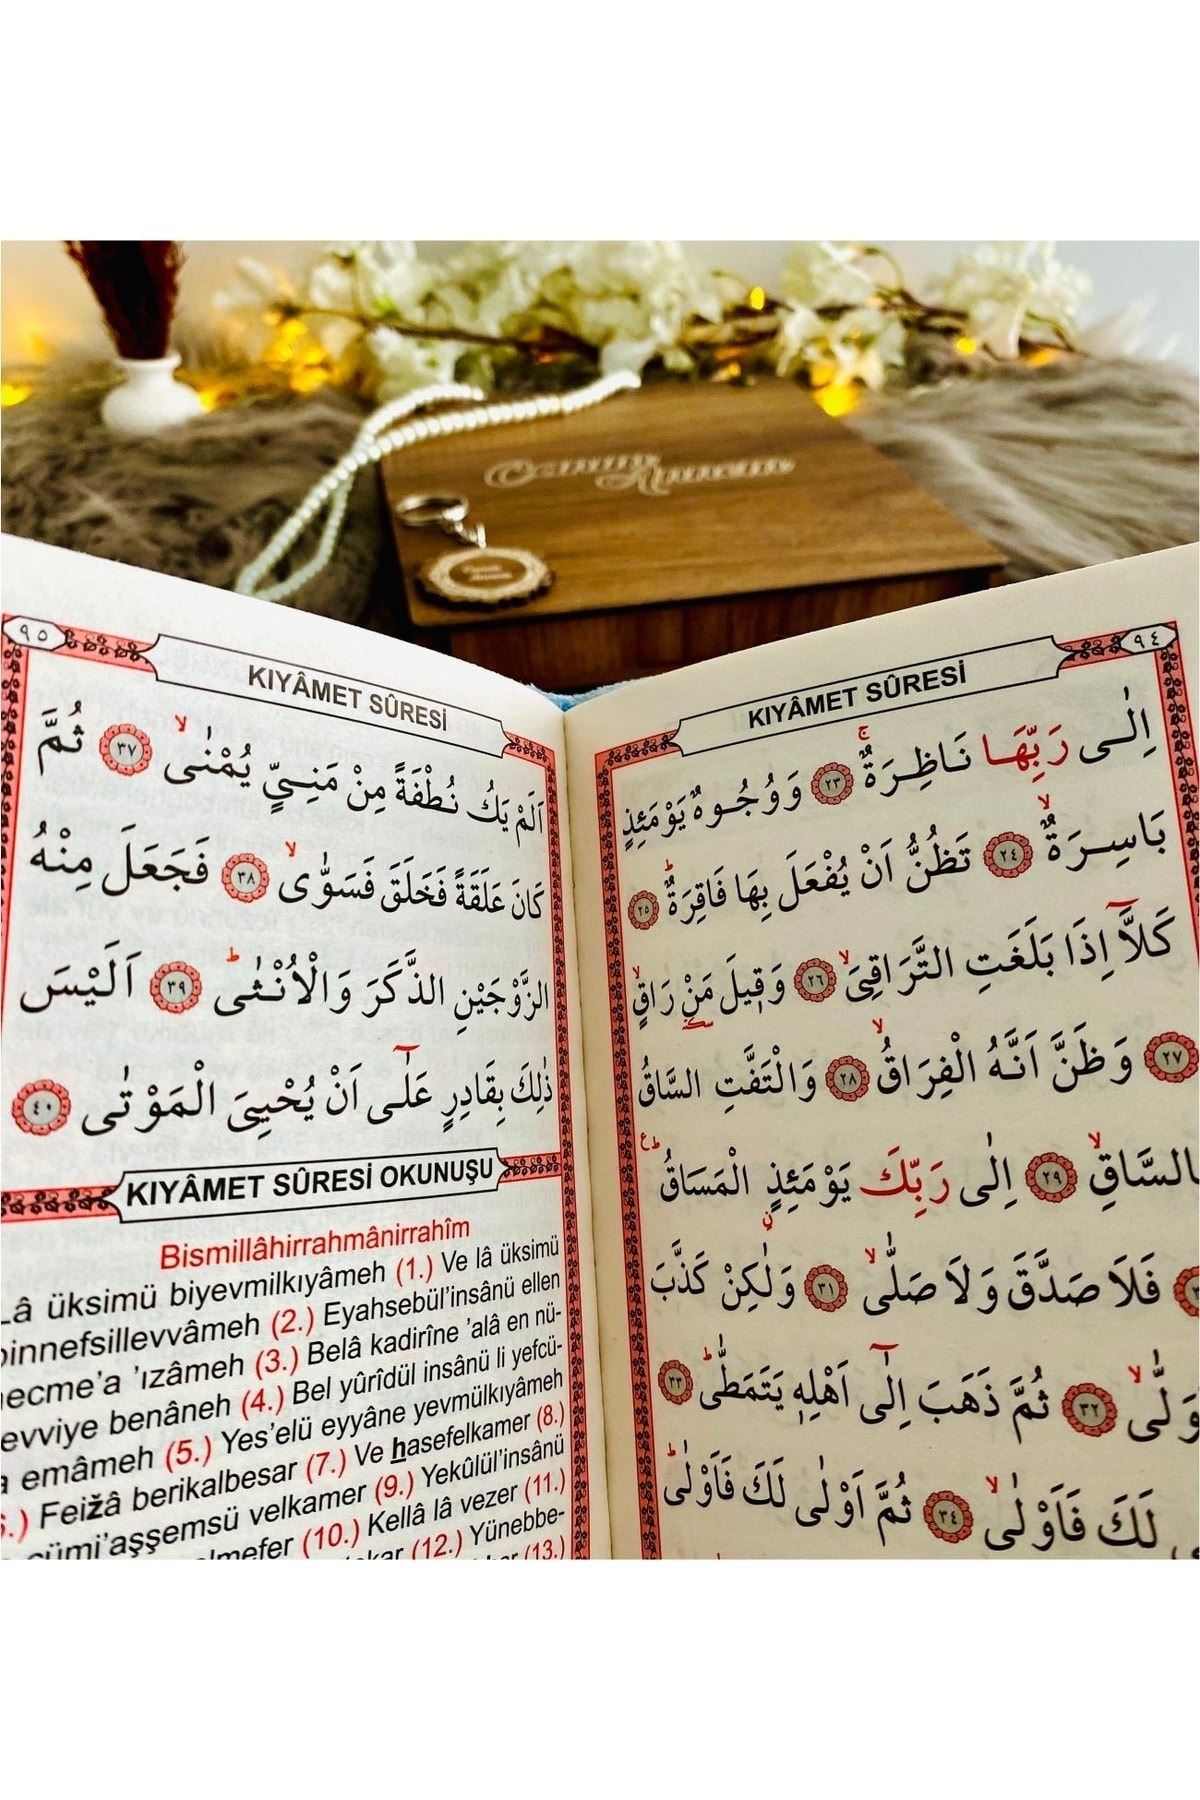 Canım Annem
٩٤
KIYÂMET SÛRESİ
اِلٰى رَبِّهَا نَاظِرَةٌۚ ﴿٢٣﴾ وَوُجُوهٌ يَوْمَئِذٍ
بَاسِرَةٌۙ ﴿٢٤﴾ تَظُنُّ اَنْ يُفْعَلَ بِهَا فَاقِرَةٌۜ ﴿٢٥﴾
كَلَّٓا اِذَا بَلَغَتِ التَّرَاقِىَۙ ﴿٢٦﴾ وَق۪يلَ مَنْ رَاقٍۙ
﴿٢٧﴾ وَظَنَّ اَنَّهُ الْفِرَاقُۙ ﴿٢٨﴾ وَالْتَفَّتِ السَّاقُ
بِالسَّاقِۙ ﴿٢٩﴾ اِلٰى رَبِّكَ يَوْمَئِذٍ الْمَسَاقُۜ
فَلَا صَدَّقَ وَلَا صَلّٰىۙ ﴿٣١﴾ وَلٰكِنْ كَذَّبَ
وَلّٰىۙ ﴿٣٢﴾ ثُمَّ ذَهَبَ اِلٰٓى اَهْلِه۪ يَتَمَطّٰىۜ ﴿٣٣﴾
لَكَ فَاَوْلٰىۙ ﴿٣٤﴾ ثُمَّ اَوْلٰى لَكَ فَاَوْلٰىۜ
٩٥
KIYÂMET SÛRESİ
اَلَمْ يَكُ نُطْفَةً مِنْ مَنِىٍّ يُمْنٰىۙ ﴿٣٧﴾ ثُمَّ
كَانَ عَلَقَةً فَخَلَقَ فَسَوّٰىۙ ﴿٣٨﴾ فَجَعَلَ مِنْهُ
الزَّوْجَيْنِ الذَّكَرَ وَالْاُنْثٰىۜ ﴿٣٩﴾ اَلَيْسَ
ذٰلِكَ بِقَادِرٍ عَلٰٓى اَنْ يُحْيِىَ الْمَوْتٰى ﴿٤٠﴾
KIYÂMET SÛRESİ OKUNUŞU
Bismillâhirrahmânirrahîm
Lâ üksimü biyevmilkıyâmeh (1.) Ve lâ üksimü
binnefsillevvâmeh (2.) Eyahsebül’insânü ellen
necme’a ’ızâmeh (3.) Belâ kadirîne ’alâ en nü-
evviye benâneh (4.) Bel yûrîdül insânü li yefcü-
a emâmeh (5.) Yes’elü eyyâne yevmülkıyâmeh
6.) Feižâ berikalbesar (7.) Ve hasefelkamer (8.)
cümi’aşşemsü velkamer (9.) Yekûlül’insânü
elmefer (10.) Kellâ lâ vezer (11.)
(12.) Yünebbe-
(13.)